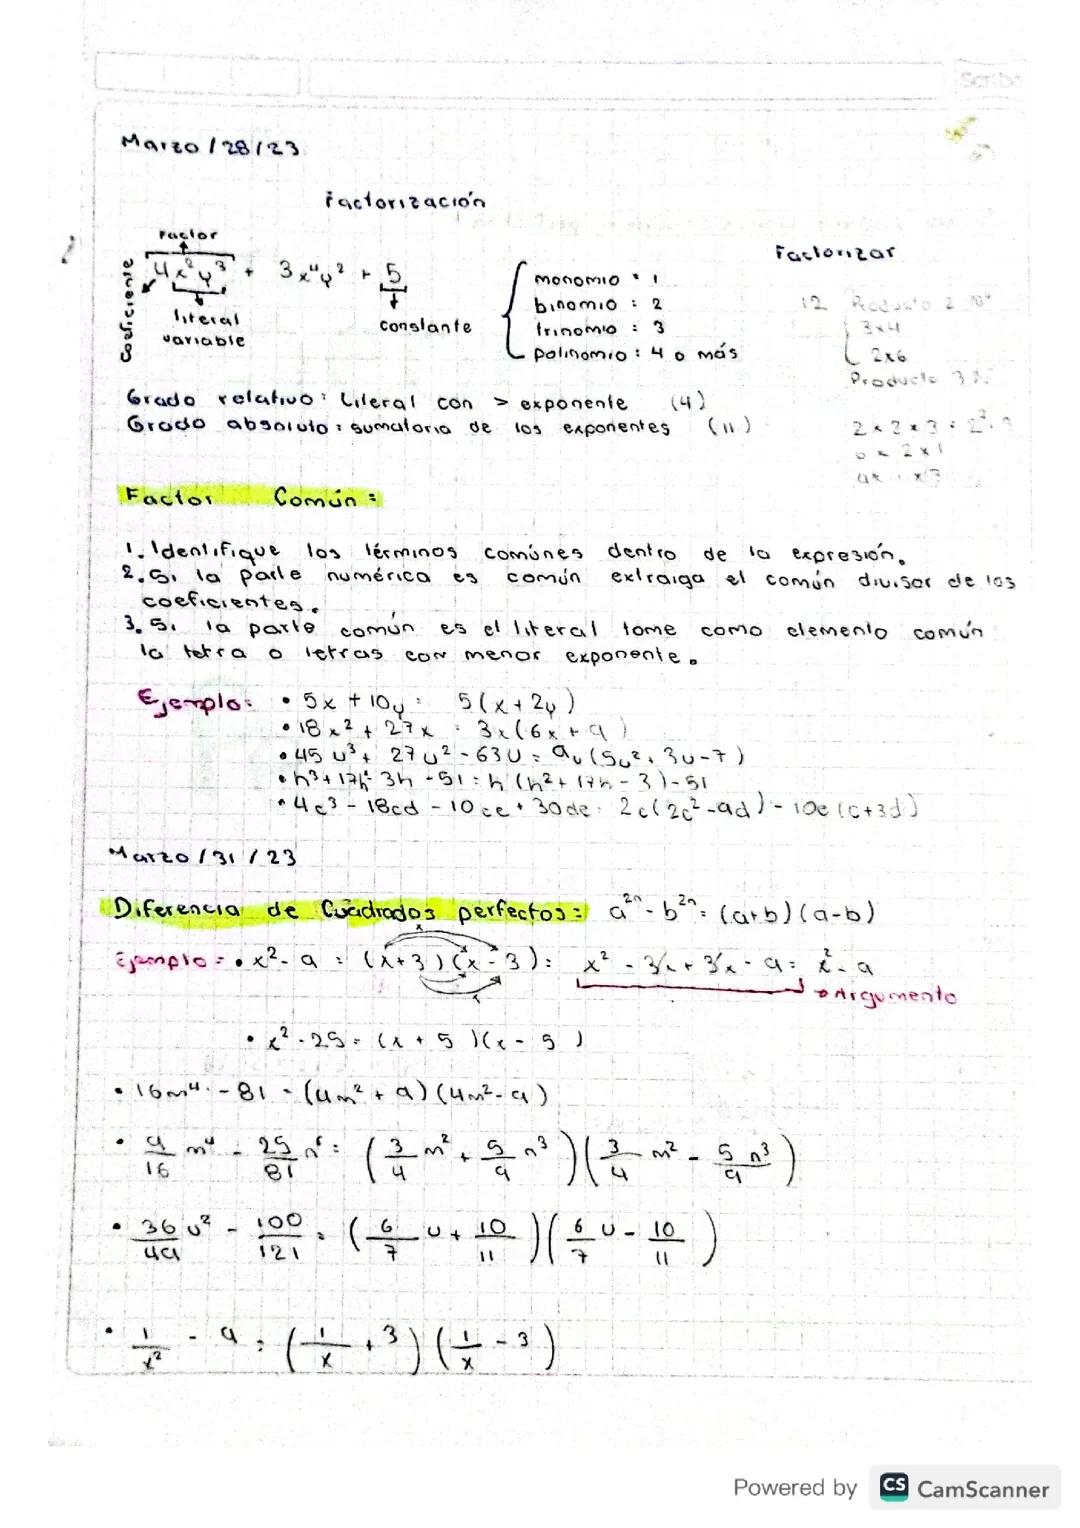 Scribe
Marzo /28/23
Factorización
Factor
Coeficiente
4x²y³ + 3x⁴y² + 5
literal
variable
constante
monomio : 1
binomio : 2
trinomio : 3
polinomio : 4 o más
Factorizar
12 Producto 2
3x4
2x6
Producto 3
2 x 2 x 3 =
Grado relativo: Literal con > exponente (4)
Grado absoluto: sumatoria de los exponentes (11)
Factor Común:
1. Identifique los términos comúnes dentro de la expresión.
2. Si la parte numérica es común extraiga el común divisor de los
coeficientes.
3. Si la parte común es el literal tome como elemento común
la letra o letras con menor exponente.
Ejemplo: • 5x + 10y = 5(x + 2y)
• 18x² + 27x = 3x(6x + 9)
• 45u³ + 27u² - 63u = 9u(5u² + 3u - 7)
• h³ + 17h² 3h - 51 = h(h² + 17h - 3) - 51
• 4c³ - 18cd - 10ce + 30de = 2c(2c² - 9d) - 10e(c + 3d)
Marzo /31 /23
Diferencia de Cuadrados perfectos: a²ⁿ - b²ⁿ = (a+b)(a-b)
Ejemplo = • x² - 9 = (x+3)(x-3) = x² - 3x + 3x - 9 = x² - 9
Argumento
• x² - 25 = (x + 5)(x - 5)
• 16m⁴ - 81 = (4m² + 9)(4m² - 9)
• 9/16 m⁴ - 25/81 n⁶ = (3/4 m² + 5/9 n³)(3/4 m² - 5/9 n³)
• 36/49 u² - 100/121 = (6/7 u + 10/11)(6/7 u - 10/11)
• 1/x² - 9 = (1/x + 3)(1/x - 3)
Powered by CS CamScanner